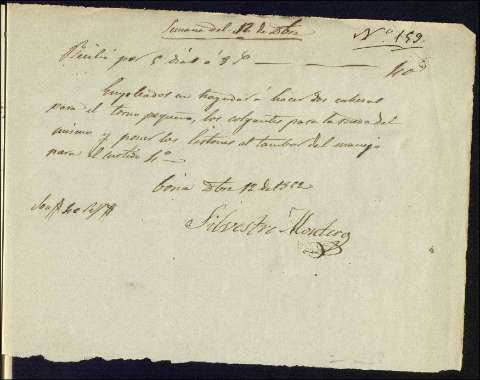 Semana del 12 de Dbre
Nº 159
Recibí por 5 dias á 8 rs — — 40 rs
Empleados en ayudar á hacer dos cabezas
para el torno pequeño, los colgantes para la rueda del
mismo y poner los listones al tambor del manejo
para el
Coria Dbre 12 de 1852
Son 40 rs
Silvestre Montero